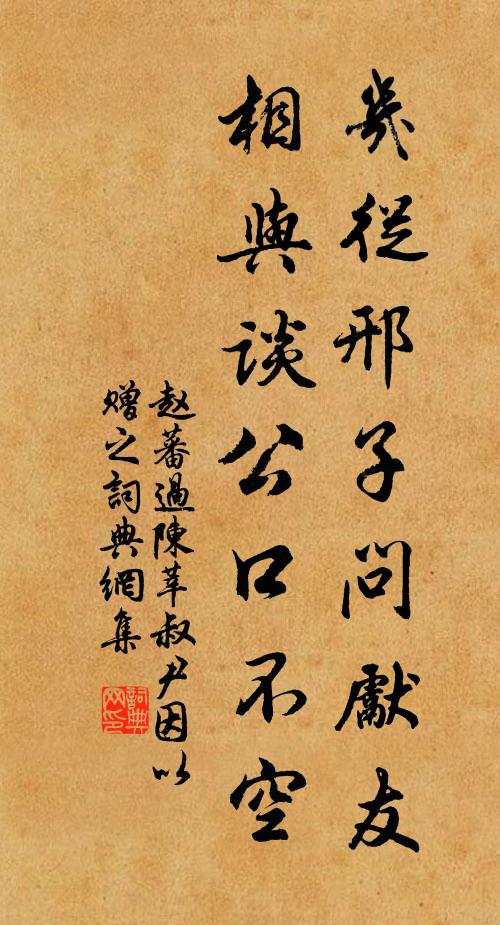 幾從邢子問獻友
相與談公口不空
赵蕃過陳莘叔尹因以
赠之詞典網集
詞典网印